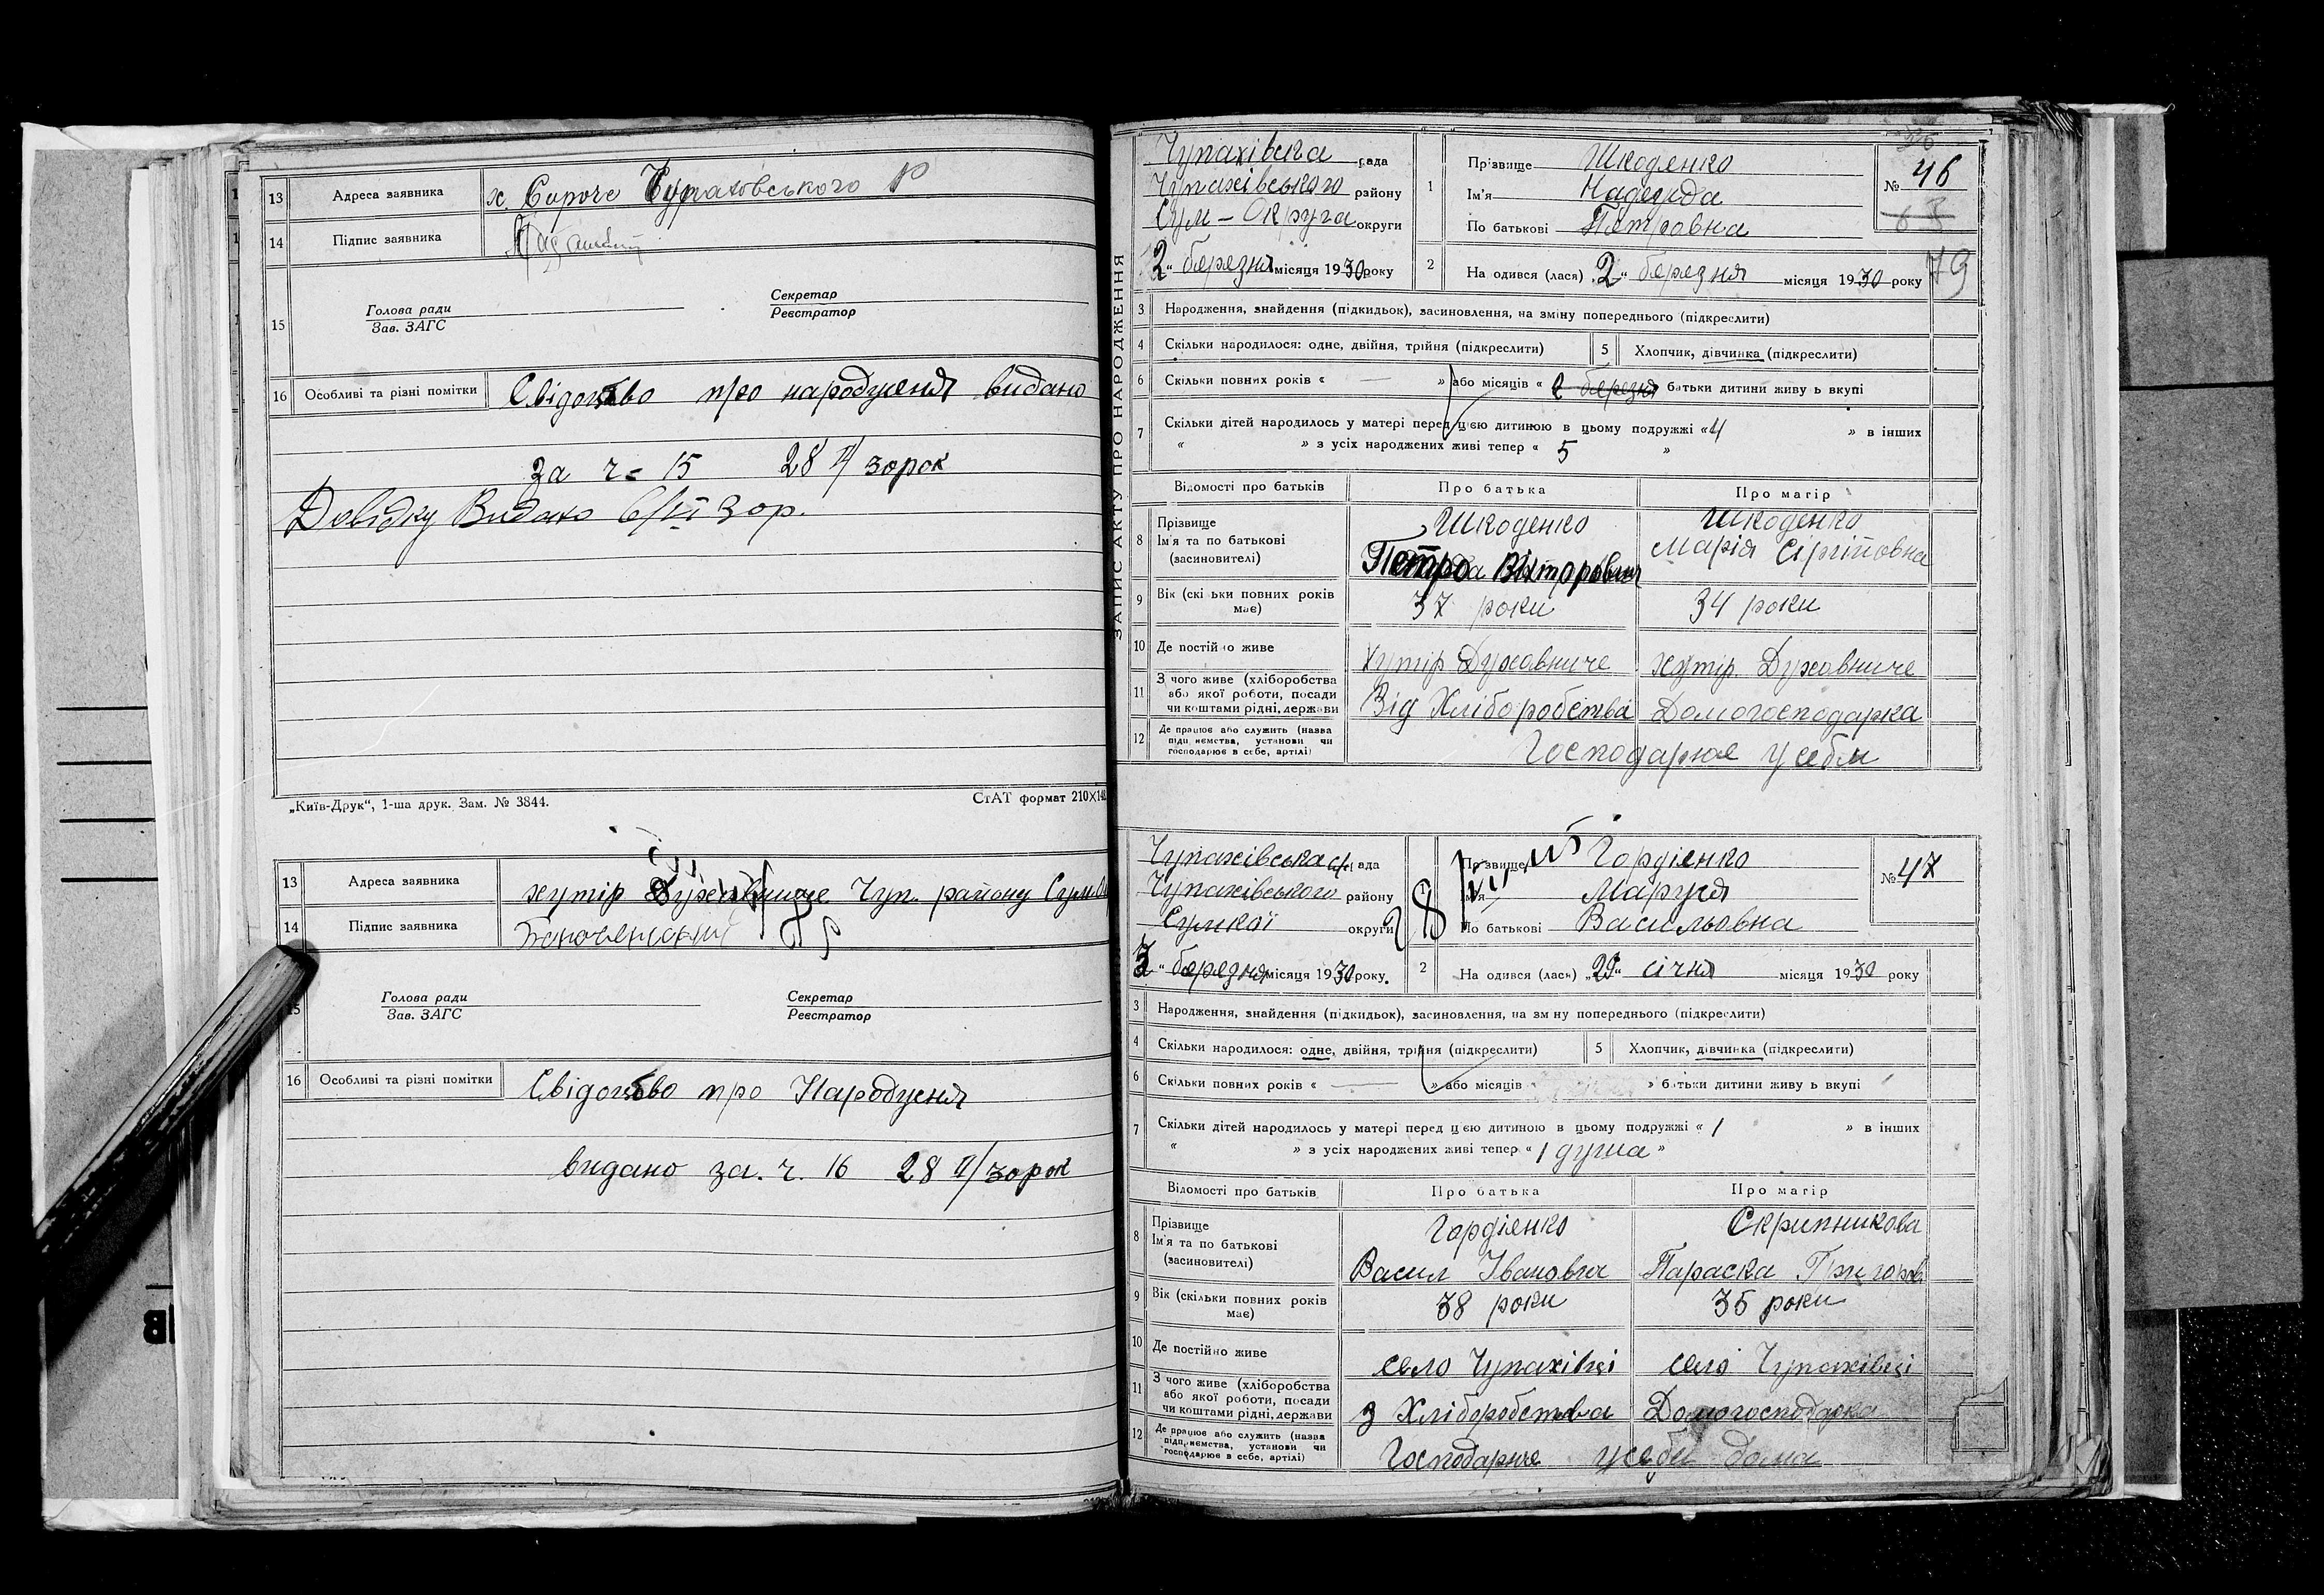 13 Адреса заявника х Сироче Чупахівського Р
14 Підпис заявника
15 Голова ради Секретар
Зав. ЗАГС Реєстратор
16 Особливі та різні помітки Свідоцтво про народженя видано
за ч = 15 28 II/ 30 рок
Довідку Видано 6/VI 30 р.
„Київ-Друк“, 1-ша друк. Зам. № 3844. СтАТ формат 210×14
13 Адреса заявника хутір Чуп. району
14 Підпис заявника
15 Голова ради Секретар
Зав. ЗАГС Реєстратор
16 Особливі та різні помітки Свідоцтво про Народженя
видано за. ч. 16 28 II/ 30 рок
ЗАПИС АКТУ ПРО НАРОДЖЕННЯ
Чупахівська рада
Чупахівського району
Сум – Округа округи
„2“ березня місяця 1930 року
1 Прізвище Шкоденко
Ім'я Надежда
По батькові Петровна
№ 46
79
2 На одився (лася) „2“ березня місяця 1930 року
3 Народження, знайдення (підкидьок), засиновлення, на зміну попереднього (підкреслити)
4 Скільки народилося: одне, двійня, трійня (підкреслити) 5 Хлопчик, дівчинка (підкреслити)
6 Скільки повних років « — » або місяців « 2 березня батьки дитини живу ь вкупі
7 Скільки дітей народилось у матері перед цією дитиною в цьому подружжі «4 » в інших
« » з усіх народжених живі тепер « 5 »
Відомості про батьків Про батька Про матір
8 Прізвище Шкоденко Шкоденко
Ім'я та по батькові Петро Вікторович Марія Сіргіповна
(засиновителі)
9 Вік (скі ьки повних років має) 37 роки 34 роки
10 Де постійно живе хутір Духовниче хутір. Духовниче
11 З чого живе (хліборобства або якої роботи, посади чи коштами рідні, держави Від Хліборобства Домогосподарка
12 Де працює або служить (назва підприємства, установи чи господарює в себе, артілі) Господарює у себи
Чупахівська с/ рада
Чупахівського району
Сумкої округи
„3“ березня місяця 1930 року.
28
1 Прізвище Гордіенко
Ім'я Маруся
По батькові Васильовна
№ 47
2 На одився (лась) „29“ січня місяця 1930 року
3 Народження, знайдення (підкидьок), засиновлення, на зміну попереднього (підкреслити)
4 Скільки народилося: одне, двійня, трійня (підкреслити) 5 Хлопчик, дівчинка (підкреслити)
6 Скільки повних років « — » або місяців » батьки дитини живу ь вкупі
7 Скільки дітей народилось у матері перед цією дитиною в цьому подружжі « 1 » в інших
« » з усіх народжених живі тепер « 1 душа »
Відомості про батьків Про батька Про матір
8 Прізвище Гордіенко Скрипникова
Ім'я та по батькові Васил Іванович Параска Григоров
(засиновителі)
9 Вік (скільки повних років має) 38 роки 35 роки
10 Де постійно живе село Чупахівці село Чупахівці
11 З чого живе (хліборобства або якої роботи, посади чи коштами рідні, держави з Хліборобства Домогосподарка
12 Де працює або служить (назва підприємства, установи чи господарює в себе, артілі) Господарює у себе дома